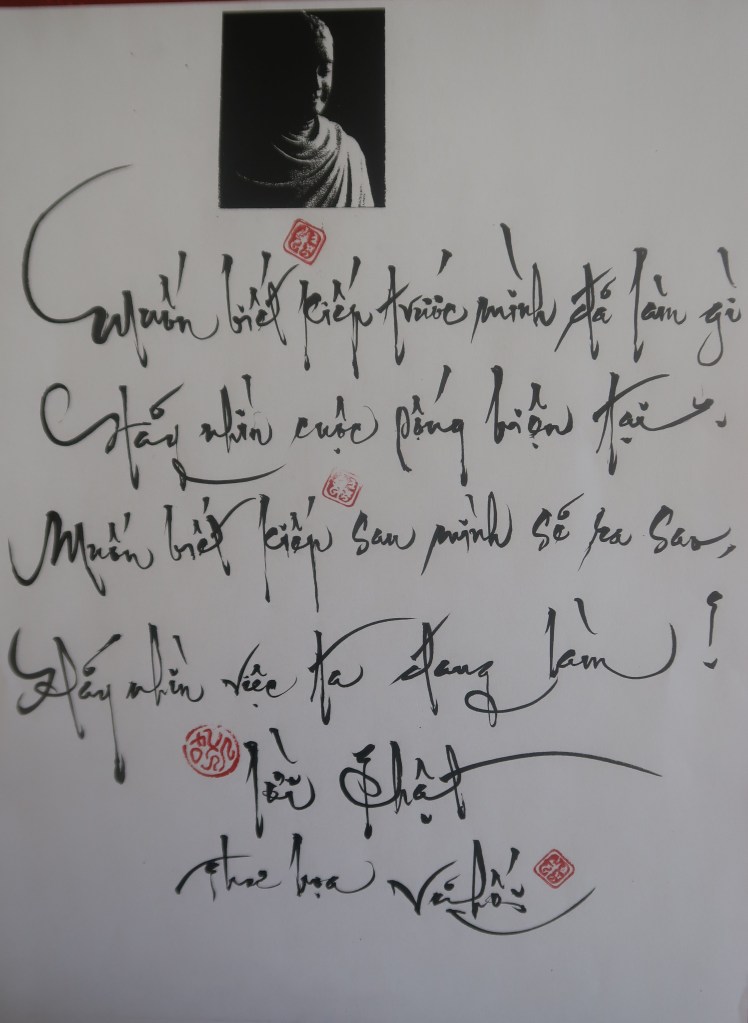 Muốn biết kiếp trước mình đã làm gì
Hãy nhìn cuộc sống hiện tại.
Muốn biết kiếp sau mình sẽ ra sao,
Hãy nhìn việc ta đang làm!
lời Phật
thư họa Vũ Hối